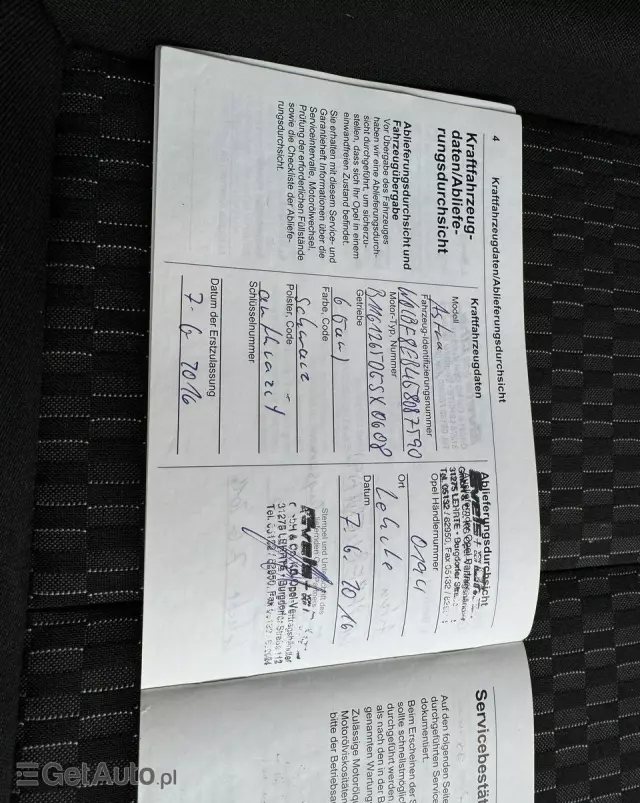 4
Kraftfahrzeugdaten/Ablieferungsdurchsicht
Kraftfahrzeug-
daten/Abliefe-
rungsdurchsicht
Ablieferungsdurchsicht und
Fahrzeugübergabe
Vor Übergabe des Fahrzeuges
haben wir eine Ablieferungsdurch-
sicht durchgeführt, um sicherzu-
stellen, dass sich Ihr Opel in einem
einwandfreien Zustand befindet.
Sie erhalten mit diesem Service- und
Garantieheft Informationen über die
Serviceintervalle, Motorölwechsel,
Prüfung der erforderlichen Füllstände
sowie die Checkliste der Abliefe-
rungsdurchsicht.
Kraftfahrzeugdaten
Astra
Modell
Fahrzeug-Identifizierungsnummer
Motor-Typ, Nummer
Getriebe
Farbe, Code
schwarz
Polster, Code
anthrazit
Schlüsselnummer
Datum der Erstzulassung
7-6 2016
Ablieferungsdurchsicht
31275 LEHRTE • Burgdorfer
Tel. 05132 / 82950, Fax 05132 /
Opel Händlernummer
Ort
Lehrte
Datum
7.6.2016
Stempel und
31275 LEHRTE • Burgdorfer Straße
Tel. 05132 / 82950, Fax
Servicebestä
Auf den folgenden Seite
durchgeführten Service
dokumentiert.
Beim Erscheinen der S
sollte schnellstmöglich
durchgeführt werden,
als nach den in der B
genannten Wartung
Zulässige Motorölq
Motorölviskositäten
bitte der Betriebsa
GetAuto.pl